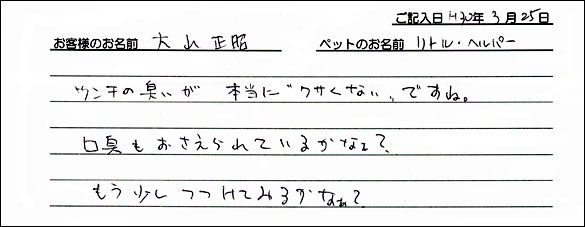 ご記入日 H20年 3月 25日
お客様のお名前 大山 正昭 ペットのお名前 リトル・ヘルパー
ウンチの臭いが 本当に"クサくない"ですね。
口臭もおさえられているかなぁ?
もう少しつづけてみるかなぁ?